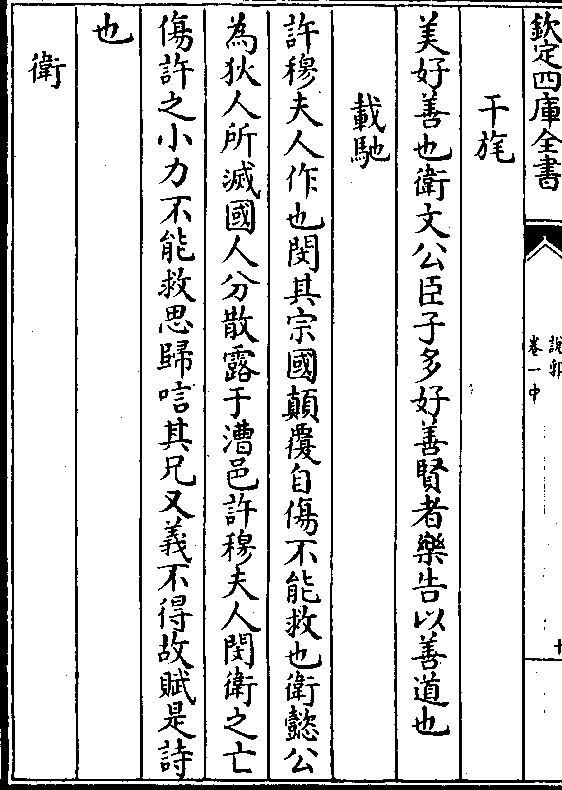 欽定四庫全書
說郛
卷一中
十
干旄
美好善也衛文公臣子多好善賢者樂告以善道也
載馳
許穆夫人作也閔其宗國顛覆自傷不能救也衛懿公
為狄人所滅國人分散露于漕邑許穆夫人閔衛之亡
傷許之小力不能救思歸唁其兄又義不得故賦是詩
也
衛